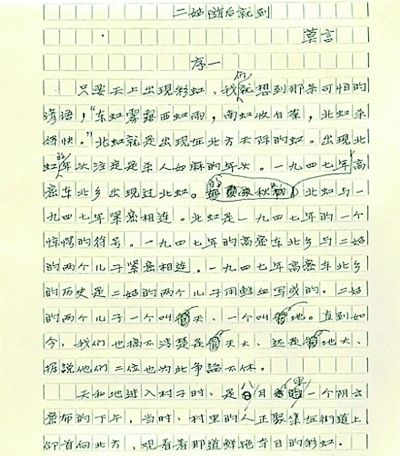 二姑随后就到
莫言
序一
只要天上出现彩虹，我们就想到那条可怕的
谚语：“东虹雾露西虹雨，南虹收白菜，北虹杀
得快。”北虹就是出现在北方天际的虹。出现北
虹的年次注定是杀人如麻的年次。一九四七年高
密东北乡出现过北虹。北虹与一
九四七年紧密相连。北虹是一九四七年的一个
惊悸的符号。一九四七年的高密东北乡与二姑
的两个儿子紧密相连。一九四七年高密东北乡
的历史是二姑的两个儿子用鲜血写成的。二姑
的两个儿子一个叫天，一个叫地。直到如
今，我们也搞不清楚是天大，还是地大，
据说他们二位也为此争论不休。
天和地进入村子时，是八月里一个阴云
密布的下午，当时，村里的人正聚集在街道上
仰首向北方，观看着那道鲜艳夺目的彩虹。